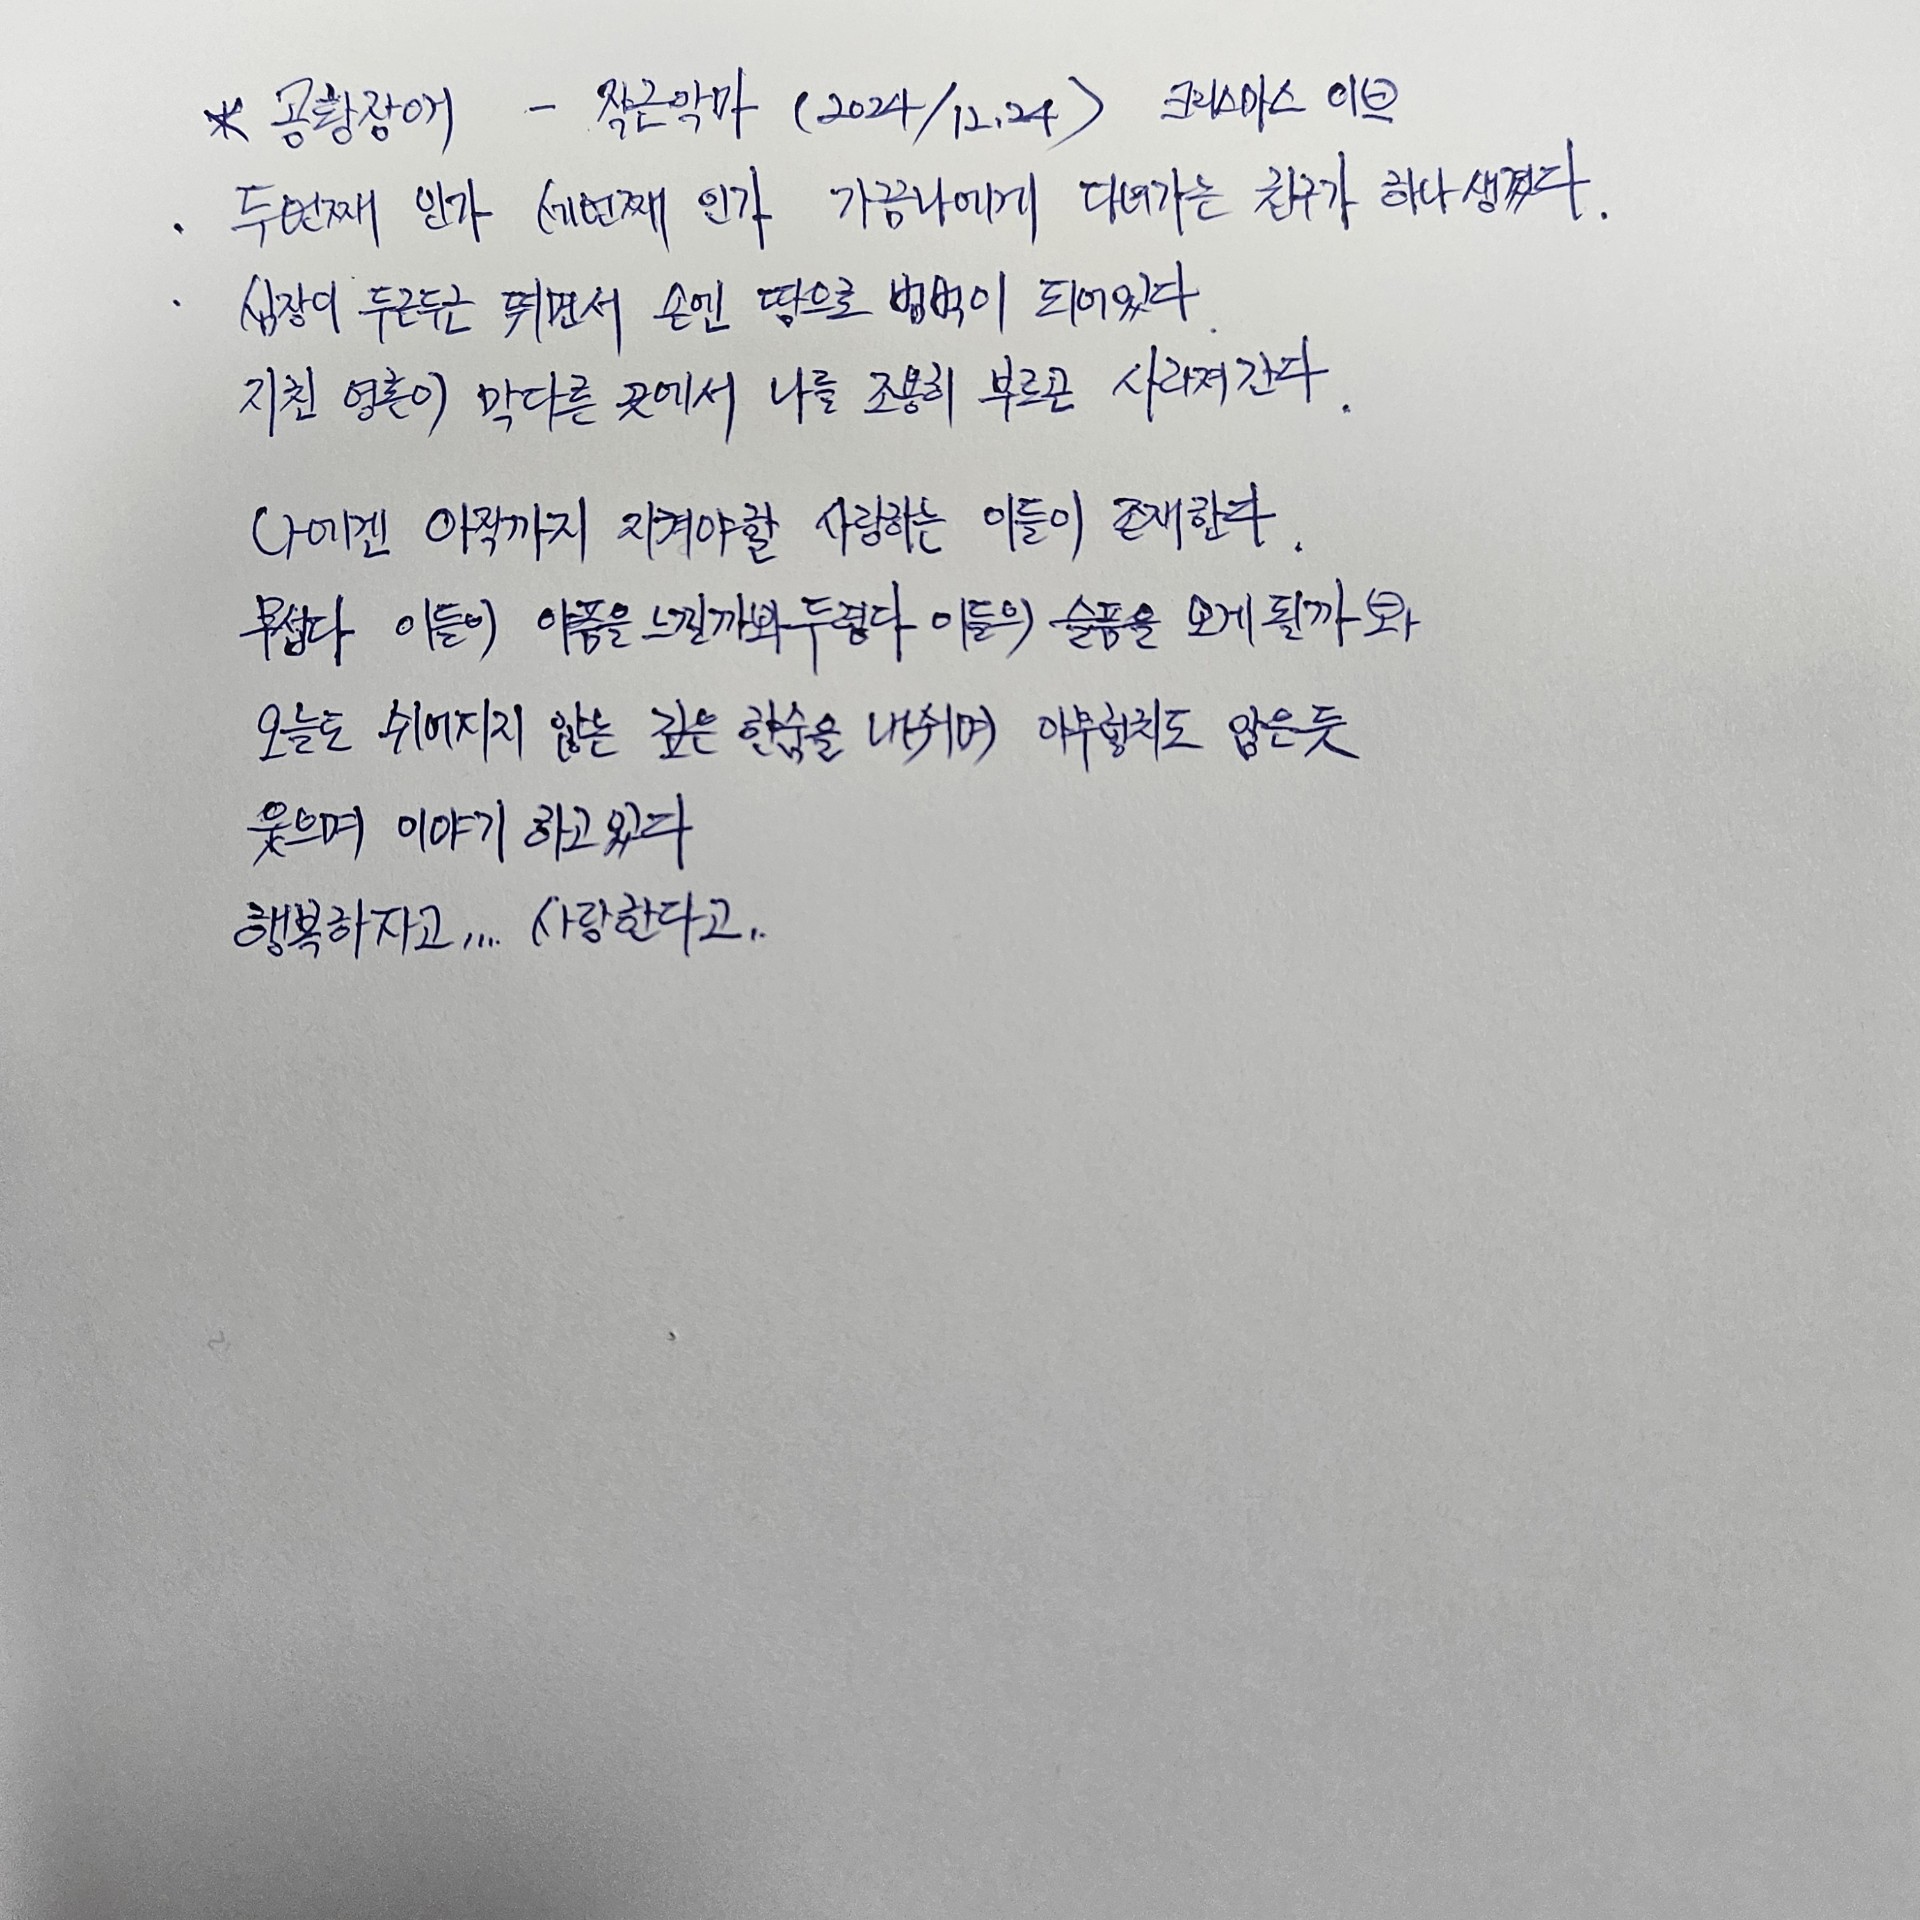 * 공황장애 - 작은악마 (2024/12.24) 크리스마스 이브
· 두번째 인가 세번째 인가 가끔나에게 다녀가는 친구가 하나 생겼다.
· 심장이 두근두근 뛰면서 손엔 땀으로 범벅이 되어있다.
지친 영혼이 막다른 곳에서 나를 조용히 부르곤 사라져간다.
나에겐 아직까지 지켜야할 사랑하는 이들이 존재한다.
무섭다 이들이 아픔을 느낄까봐 두렵다 이들의 슬픔을 보게 될까 봐
오늘도 쉬어지지 않는 깊은 한숨을 내쉬며 아무렇치도 않은듯
웃으며 이야기 하고있다
행복하자고.... 사랑한다고..